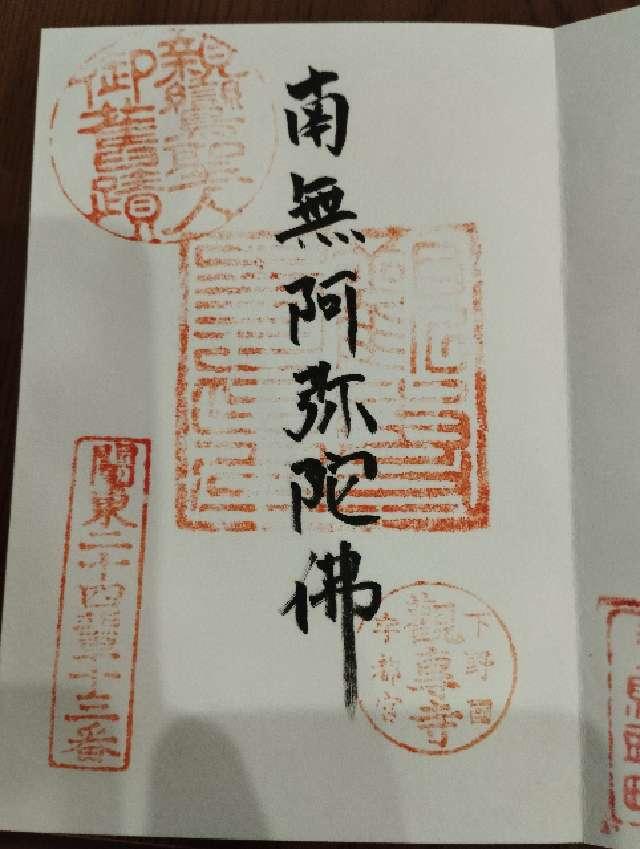 親鸞聖人
御舊蹟
南無阿弥陀佛
關東二十四輩十三番
下野國
觀專寺
宇都宮